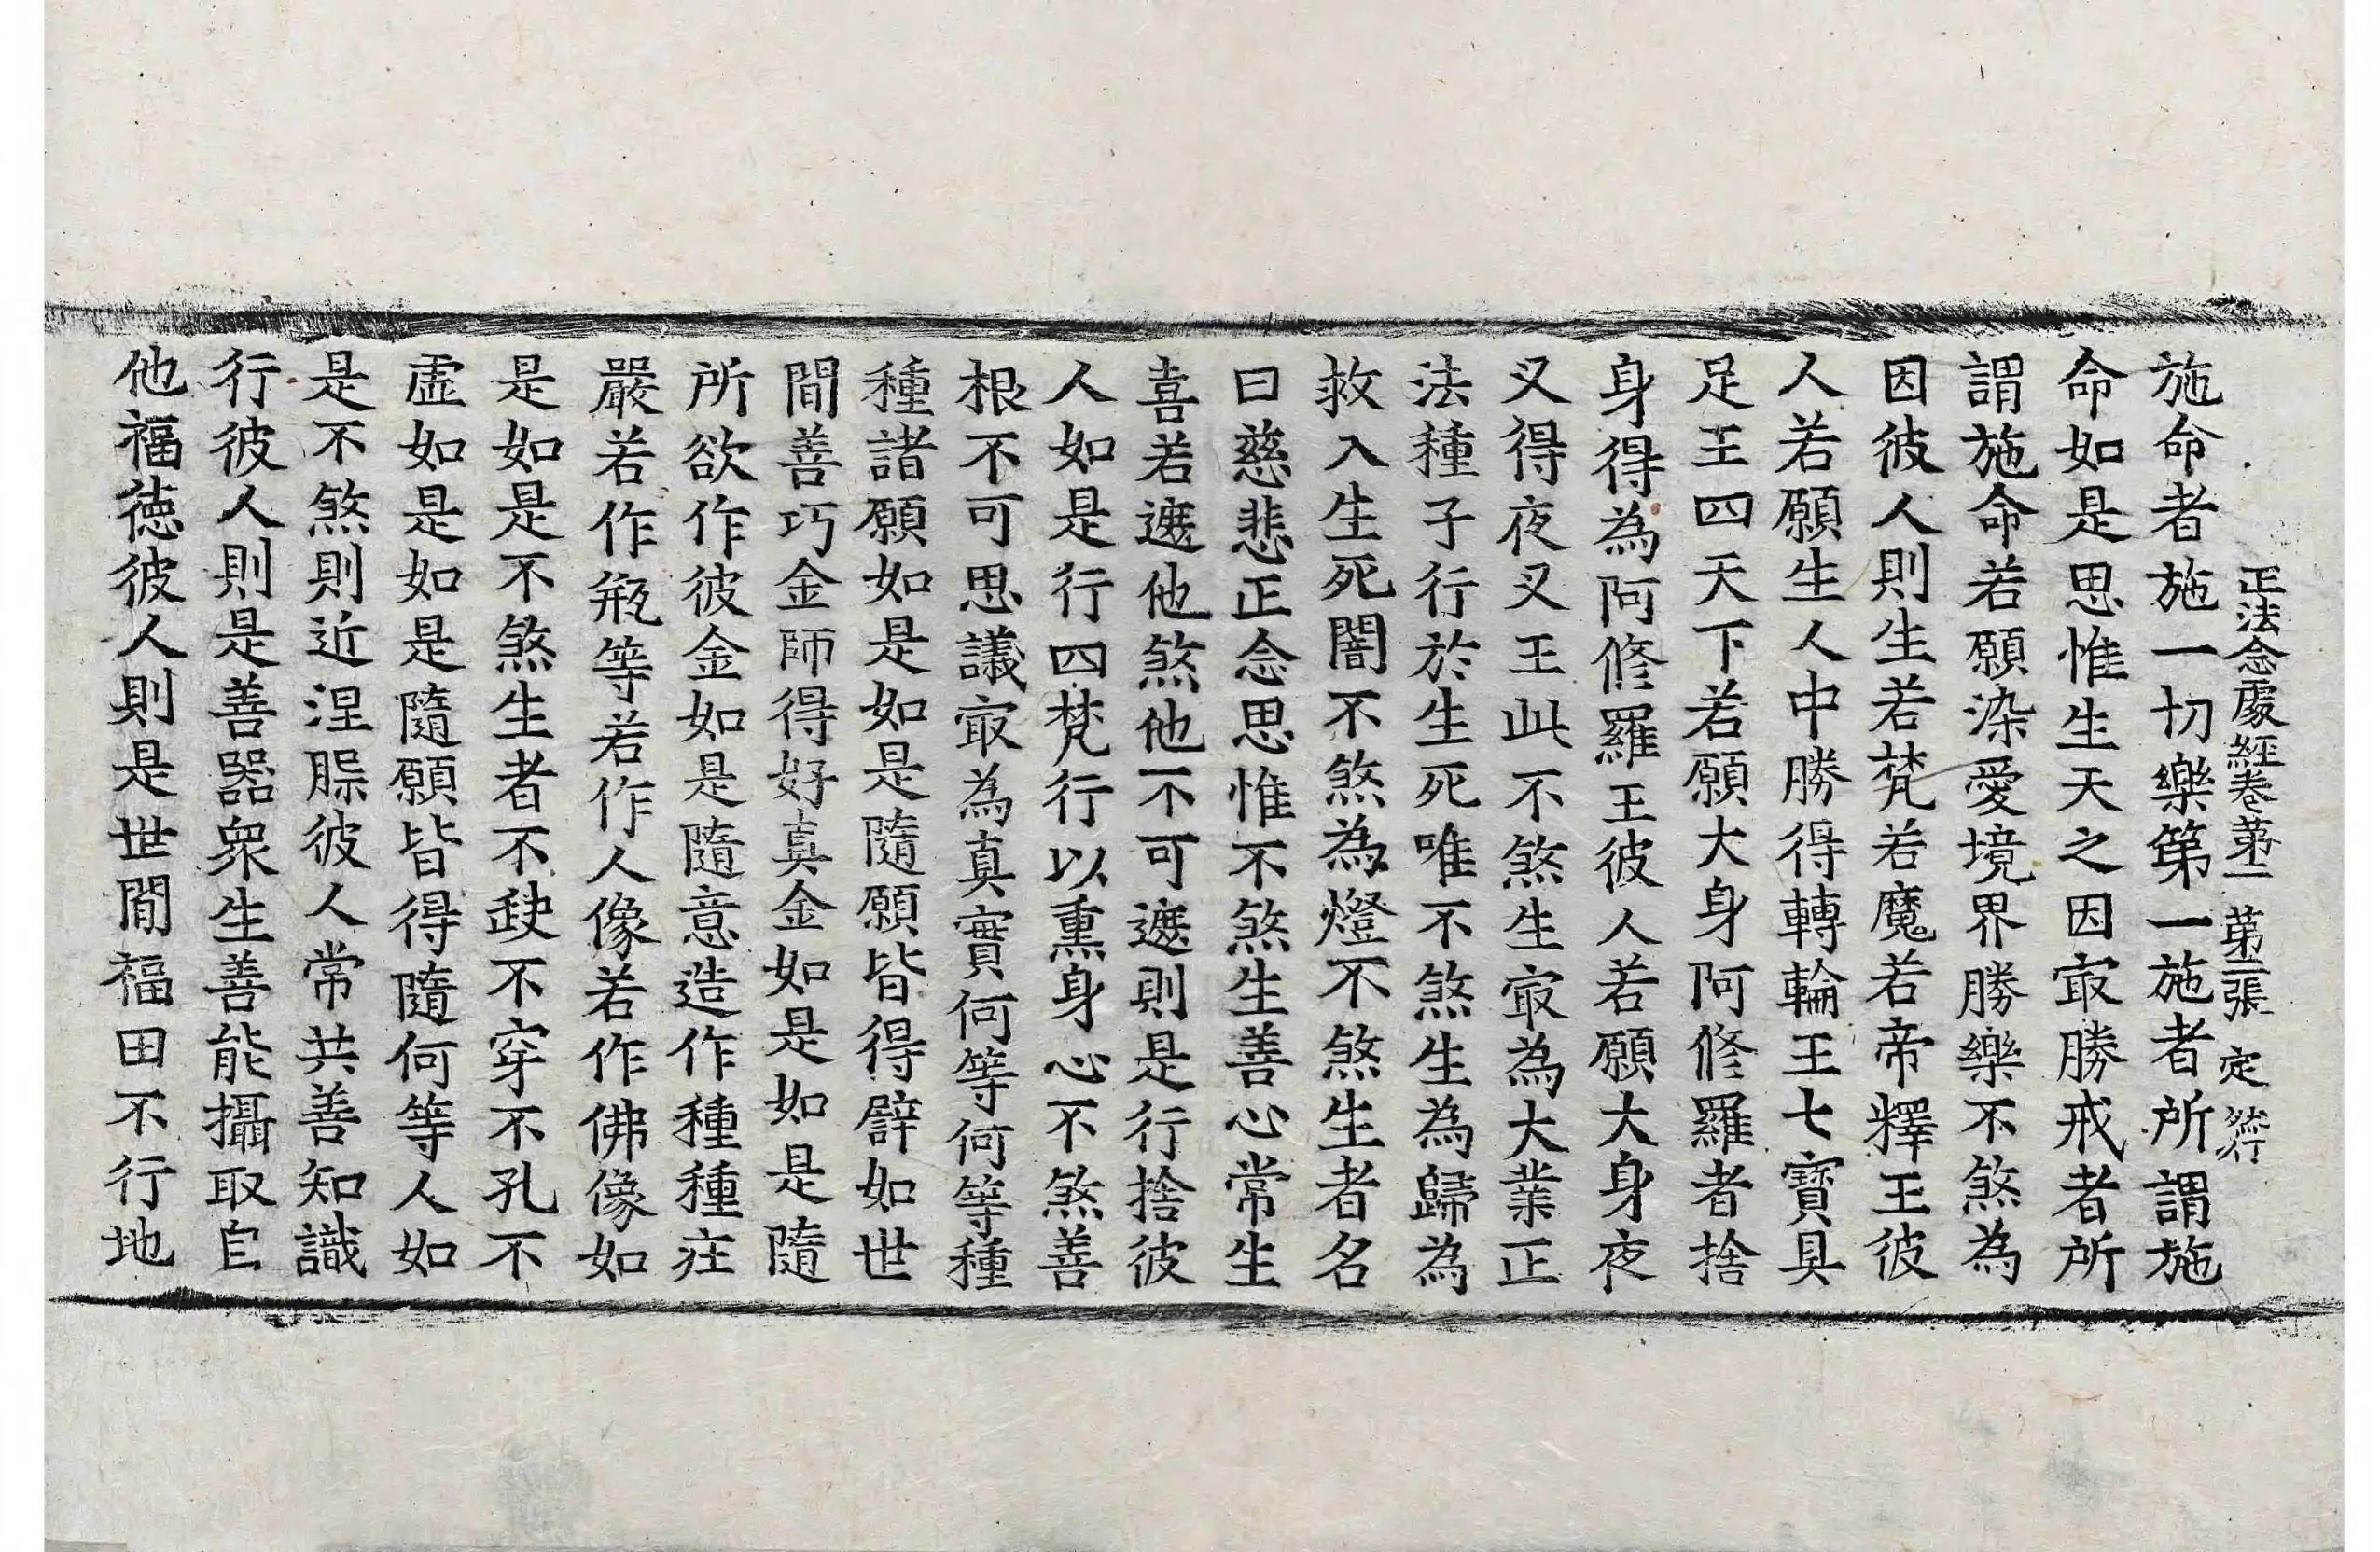 正法念處經卷第二　第二張　定
施命者施一切樂第一施者所謂施
命如是思惟生天之因㝡勝戒者所
謂施命若願染愛境界勝樂不煞為
因彼人則生若梵若魔若帝釋王彼
人若願生人中勝得轉輪王七寶具
足王四天下若願大身阿修羅者捨
身得為阿修羅王彼人若願大身夜
叉得夜叉王此不煞生㝡為大業正
法種子行於生死唯不煞生為歸為
救入生死闇不煞為燈不煞生者名
曰慈悲正念思惟不煞生善心常生
喜若遮他煞他不可遮則是行捨彼
人如是行四梵行以熏身心不煞善
根不可思議㝡為真實何等何等種
種諸願如是如是隨願皆得譬如世
間善巧金師得好真金如是如是隨
所欲作彼金如是隨意造作種種莊
嚴若作瓶等若作人像若作佛像如
是如是不煞生者不缺不穿不孔不
虛如是如是隨願皆得隨何等人如
是不煞則近涅槃彼人常共善知識
行彼人則是善器衆生善能攝取自
他福德彼人則是世間福田不行地